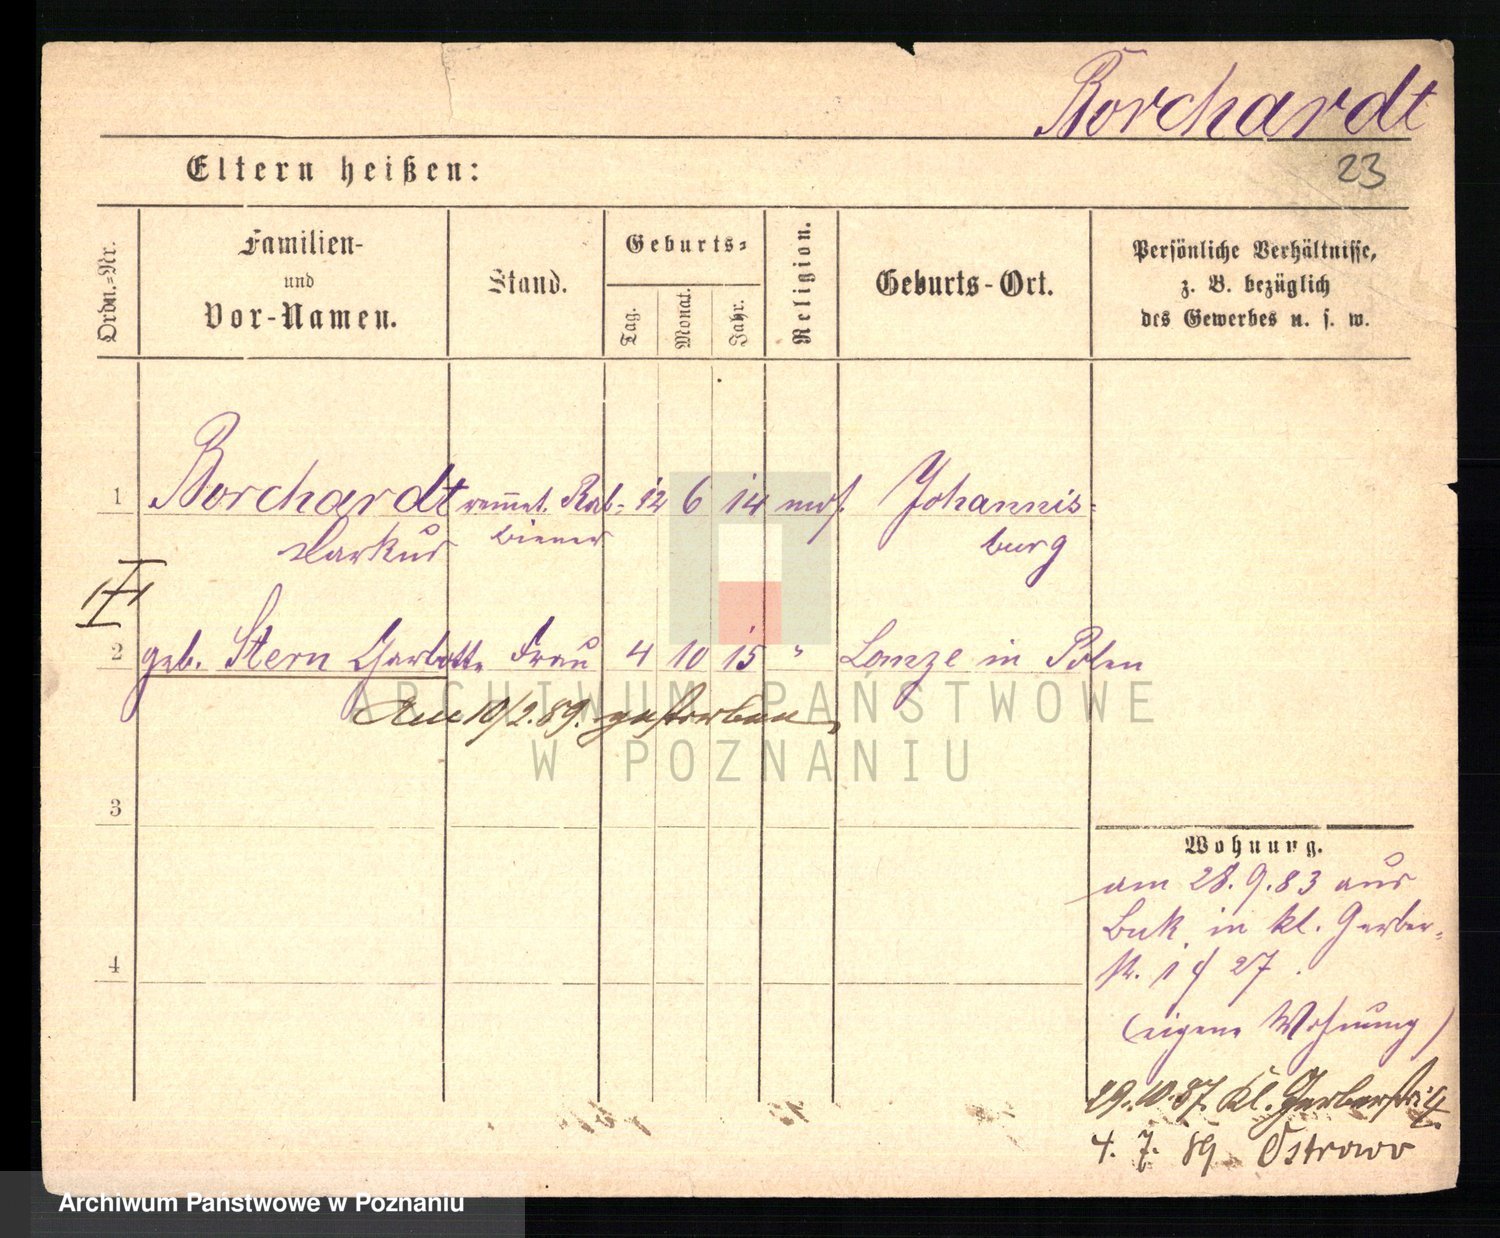 Borchardt
23
Eltern heißen:
Ordn.=Nr.
Familien-
und
Vor-Namen.
Stand.
Geburts=
Tag.
Monat.
Jahr.
Religion.
Geburts-Ort.
Persönliche Verhältnisse,
z. B. bezüglich
des Gewerbes u. s. w.
1 Borchardt Rab= 12 6 14 mos. Johannis=
Markus biener burg
2 geb. Stern Frau 4 10 15 " Lomze in Polen
Am 10/2.89. gestorben
3
4
Wohnung.
am 28.9.83 aus
Buk in kl. Gerber=
str. 14 27.
(eigene Wohnung)
29.10.87. Kl. Gerberstr. 4.
4. 7. 89 Ostrowo
ARCHIWUM PAŃSTWOWE
W POZNANIU
Archiwum Państwowe w Poznaniu